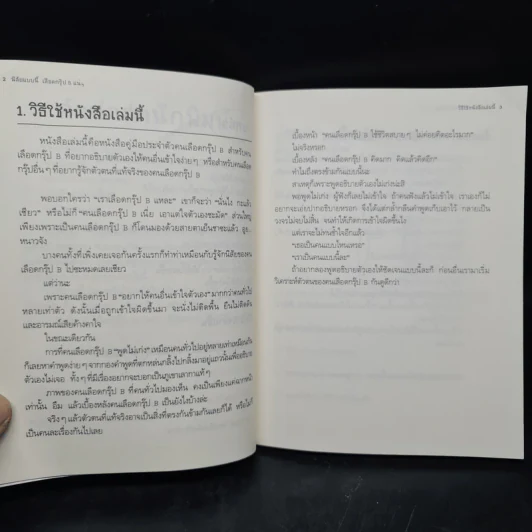 2 นิสัยแบบนี้ เลือดกรุ๊ป B แหละ
1. วิธีใช้หนังสือเล่มนี้
หนังสือเล่มนี้คือหนังสือคู่มือประจำตัวคนเลือดกรุ๊ป B สำหรับคน
เลือดกรุ๊ป B ที่อยากอธิบายตัวเองให้คนอื่นเข้าใจง่ายๆ หรือสำหรับคนเลือด
กรุ๊ปอื่นๆ ที่อยากรู้จักตัวตนที่แท้จริงของคนเลือดกรุ๊ป B
พอบอกใครว่า "เราเลือดกรุ๊ป B แหละ" เขาก็จะว่า "นั่นไง กะแล้ว
เชียว" หรือไม่ก็ "คนเลือดกรุ๊ป B เนี่ย เอาแต่ใจตัวเองชะมัด" ส่วนใหญ่
เพียงเพราะเป็นคนเลือดกรุ๊ป B ก็โดนมองด้วยสายตาเย็นชาซะแล้ว อู๊ย...
หนาวจัง
บางคนทั้งที่เพิ่งเคยเจอกันครั้งแรกก็ทำท่าเหมือนกับรู้จักนิสัยของคน
เลือดกรุ๊ป B ไปซะหมดเลยเชียว
แต่ว่านะ
เพราะคนเลือดกรุ๊ป B "อยากให้คนอื่นเข้าใจตัวเอง" มากกว่าคนทั่วไป
หลายเท่าตัว ดังนั้นเมื่อถูกเข้าใจผิดขึ้นมา จะนั่งไม่ติดพื้น ยืนไม่ติดดิน
และอารมณ์เสียค้างคาใจ
ในขณะเดียวกัน
การที่คนเลือดกรุ๊ป B "พูดไม่เก่ง" เหมือนคนทั่วไปอยู่หลายเท่าเหมือนกัน
ก็เลยหาคำพูดง่ายๆ จากกองคำพูดที่ตกหล่นกลิ้งไปกลิ้งมาอยู่แถวนั้นเพื่ออธิบาย
ตัวเองไม่เจอ ทั้งๆ ที่มีเรื่องอยากจะบอกเป็นภูเขาเลากาแท้ๆ
ภาพของคนเลือดกรุ๊ป B ที่คนทั่วไปมองเห็น คงเป็นเพียงแค่ฉากหน้า
เท่านั้น อืม แล้วเบื้องหลังคนเลือดกรุ๊ป B เป็นยังไงบ้างล่ะ
จริงๆ แล้วตัวตนที่แท้จริงอาจเป็นสิ่งที่ตรงกันข้ามกันเลยก็ได้ หรือไม่ก็
เป็นคนละเรื่องกันไปเลย
วิธีใช้หนังสือเล่มนี้ 3
เบื้องหน้า "คนเลือดกรุ๊ป B ใช้ชีวิตสบายๆ ไม่ค่อยคิดอะไรมาก"
ไม่จริงหรอก
เบื้องหลัง "คนเลือดกรุ๊ป B คิดมาก คิดแล้วคิดอีก"
ทำไมถึงตรงข้ามกันแบบนี้นะ
สาเหตุก็เพราะพูดอธิบายตัวเองไม่เก่งน่ะสิ
พอพูดไม่เก่ง ผู้ฟังก็เลยไม่เข้าใจ ถ้าคนฟังแล้วไม่เข้าใจ เราเองก็ไม่
อยากจะเอ่ยปากอธิบายหรอก จึงได้แต่กล้ำกลืนคำพูดเก็บเอาไว้ กลายเป็น
วงจรไม่จบไม่สิ้น จนทำให้เกิดการเข้าใจผิดขึ้นไง
แต่เราจะไม่ทนช้ำใจอีกแล้ว
"เธอเป็นคนแบบไหนเหรอ"
"เราเป็นคนแบบนี้ละ"
ถ้าอยากลองพูดอธิบายตัวเองให้ชัดเจนแบบนี้ละก็ ก่อนอื่นเรามาเริ่ม
วิเคราะห์ตัวตนของคนเลือดกรุ๊ป B กันดูดีกว่า